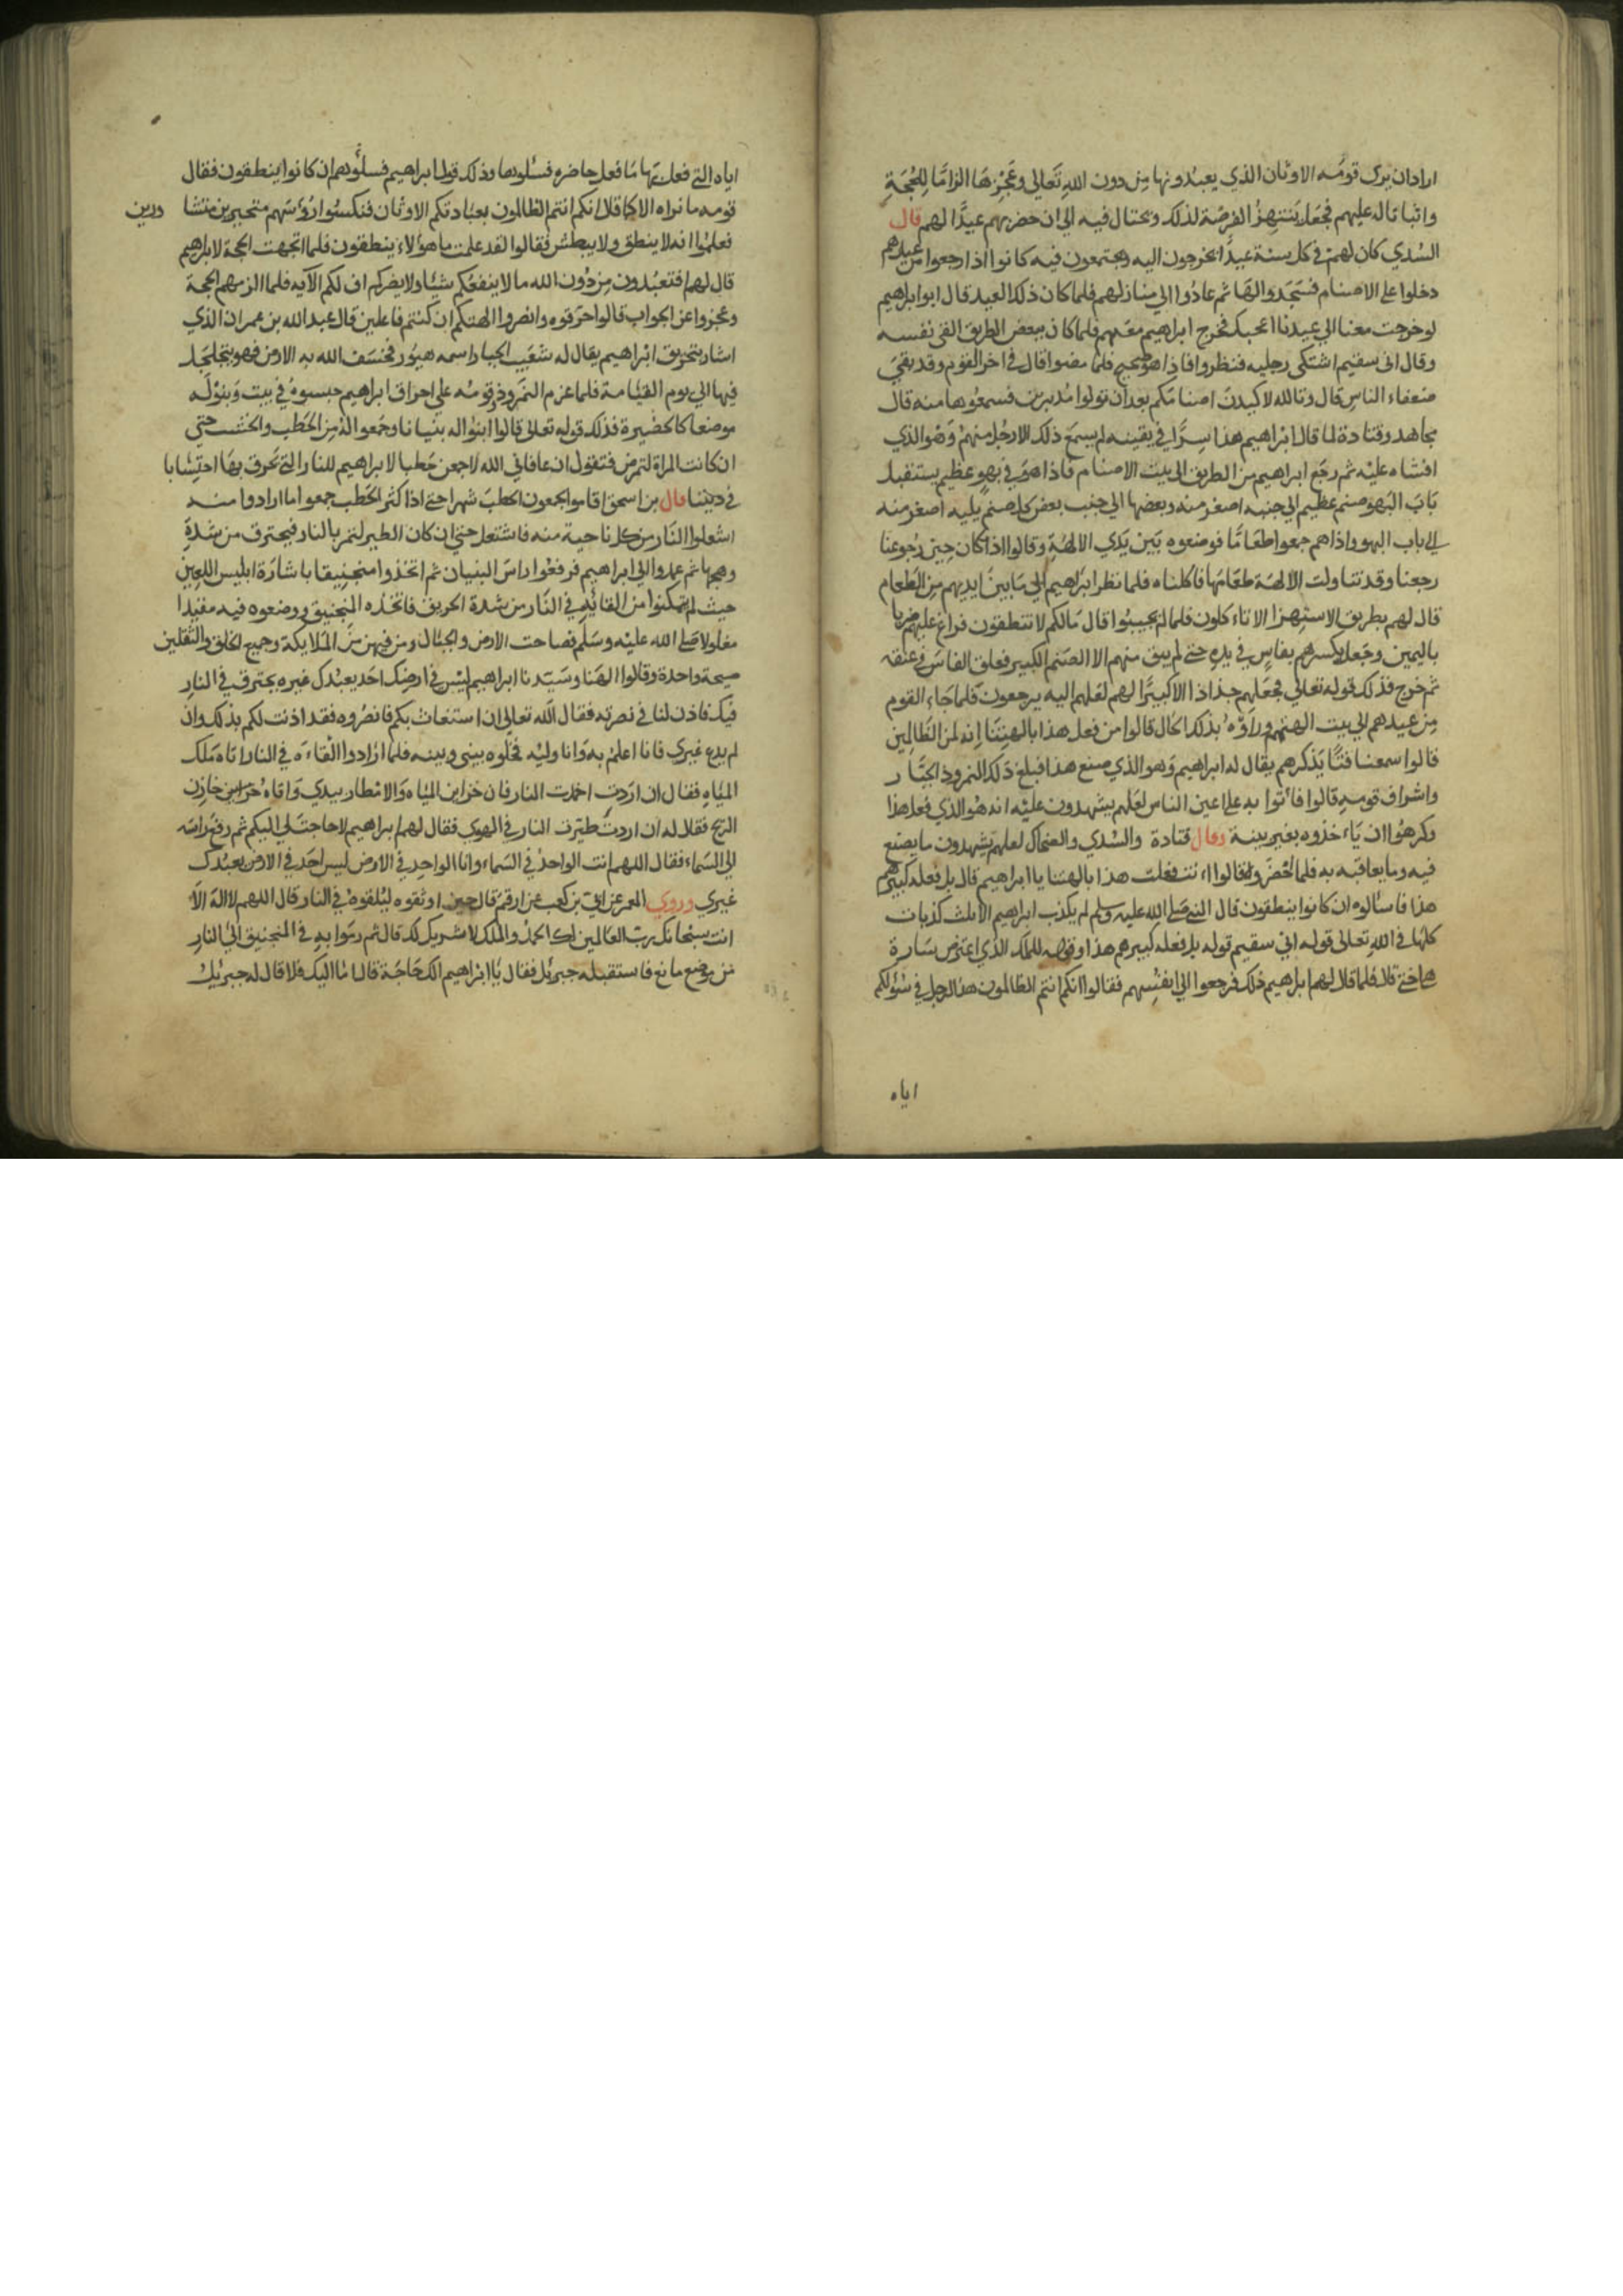 اراد ان يرى قومه الاوثان الذي يعبدونها من دون الله تعالى وعجزها الزاما للحجة
واثباتا له عليهم فجعل ينتهز الفرصة لذلك ويحتال فيه الى ان حضر لهم عيدا لهم قال
السدي كان لهم في كل سنة عيدا يخرجون اليه ويجتمعون فيه كانوا اذا رجعوا من عيدهم
دخلوا على الاصنام فسجدوا لها ثم عادوا الى منازلهم فلما كان ذلك العيد قال ابو ابراهيم
لو خرجت معنا الى عيدنا اعجبك فخرج ابراهيم معهم فلما كان ببعض الطريق القى نفسه
وقال انى سقيم اشتكى رجليه فنظروا فاذا هو صحيح فلما مضوا قال في اخر القوم وقد بقى
ضعفاء الناس قال وتالله لاكيدن اصنامكم بعد ان تولوا مدبرين فسمعوها منه قال
مجاهد وقتادة لما قال ابراهيم هذا سرا في يقينه لم يسمع ذلك الا رجل منهم وهو الذي
افشاه عليه ثم رجع ابراهيم من الطريق الى بيت الاصنام فاذا هو في بهو عظيم يستقبل
باب البهو صنم عظيم الى جنبه اصغر منه وبعضها الى جنب بعض كل صنم يليه اصغر منه
الى باب البهو واذاهم جمعوا طعاما فوضعوه بين يدي الالهة وقالوا اذا كان حين رجوعنا
رجعنا وقد تناولت الالهة طعامها فاكلناه فلما نظر ابراهيم الى ما بين ايديهم من الطعام
قال لهم بطريق الاستهزا الا تاءكلون فلما لم يجيبوا قال مالكم لا تنطقون فراغ عليهم ضربا
باليمين وجعل يكسرهم بفاس في يده حتى لم يبق منهم الا الصنم الكبير فعلق الفاس في عنقه
ثم خرج فذلك قوله تعالى فجعلهم جذاذا الا كبيرا لهم لعلهم اليه يرجعون فلما جاء القوم
من عيدهم الى بيت الهتهم وراوه بذلك الحال قالوا من فعل هذا بالهتنا انه لمن الظالمين
قالوا سمعنا فتا يذكرهم يقال له ابراهيم وهو الذي صنع هذا فبلغ ذلك النمروذ الجبار
واشراف قومه قالوا فأتوا به على اعين الناس لعلهم يشهدون عليه انه هو الذي فعل هذا
وكرهوا ان ياءخذوه بغير بينة وقال قتادة والسدي والضحاك لعلهم يشهدون ما يصنع
فيه وما يعاقبه به فلما احضروه قالوا اانت فعلت هذا بالهتنا يا ابراهيم قال بل فعله كبيرهم
هذا فاسئالوه ان كانوا ينطقون قال النبي صلى الله عليه وسلم لم يكذب ابراهيم الا ثلث كذبات
كلها في الله تعالى قوله اني سقيم قوله بل فعله كبيرهم هذا وقوله للملك الذي اعترض سارة
هي اختي قلا فلما قال لهم ابراهيم ذلك فرجعوا الى انفسهم فقالوا انكم انتم الظالمون هذا الرجل في سئولكم
اياه
اياه التى فعل بها ما فعل حاضره فسئلوها وذلك قول ابراهيم فسلؤهم ان كانوا ينطقون فقال
قومه ما نراه الا كما قلا انكم انتم الظالمون بعبادتكم الاوثان فنكسوا رؤسهم متحيرين
فعلموا انه لا ينطق ولا يبطش فقالوا لقد علمت ما هؤلاء ينطقون فلما اتجهت الحجة لابراهيم
قال لهم افتعبدون من دون الله ما لا ينفعكم شيئا ولا يضركم اف لكم الآيه فلما الزمهم الحجة
وعجزوا عن الجواب قالوا حرقوه وانصروا الهتكم ان كنتم فاعلين قال عبد الله بن عمر ان الذي
اشار بتحريق ابراهيم يقال له شعيب الجبار اسمه هيور فخسف الله به الارض فهو يتجلجل
فيها الى يوم القيامة فلما عزم النمروذ وقومه على احراق ابراهيم حبسوه في بيت وبنوا له
موضعا كالحضيرة فذلك قوله تعالى قالوا ابنوا له بنيانا وجمعوا له من الحطب والخشب حتى
ان كانت المراة لتمرض فتقول ان عافاني الله لاجمعن حطبا لابراهيم للنار التى تحرق بها احتسابا
في ديننا قال بن اسحق اقاموا يجمعون الحطب شهرا حتى اذا كثر الحطب جمعوا ما ارادوا منه
اشعلوا النار من كل ناحية منه فاشتعل حتى ان كان الطير لتمر بالنار فيحترق من شدة
وهجها ثم عمدوا الى ابراهيم فرفعوا راس البنيان ثم اتخذوا منجنيقا باشارة ابليس اللعين
حيث لم يتمكنوا من القائه في النار من شدة الحريق فاتخذه المنجنيق ووضعوه فيه مقيدا
مغلولا صلى الله عليه وسلم فصاحت الارض والجبال ومن فيهن من الملايكة وجميع الخلق والثقلين
صيحة واحدة وقالوا الهنا وسيدنا ابراهيم ليس في ارضك احد يعبدك غيره يحترق في النار
فيك فاذن لنا في نصرته فقال الله تعالى ان استغاث بكم فانصروه فقد اذنت لكم بذلك وان
لم يدع غيري فانا اعلم به وانا وليه فخلوه بيني وبينه فلما ارادوا القاءه في النار اتاه ملك
المياه فقال ان اردت اخمدت النار فان خزاين المياه والامطار بيدي واتاه خازن
الريح فقال له ان اردت طيرت النار في الهوى فقال لهم ابراهيم لا حاجت لي اليكم ثم رفع راسه
الى السماء فقال اللهم انت الواحد في السماء وانا الواحد في الارض ليس احد في الارض يعبدك
غيري وروى المعمر عن ابي بن كعب عن ارقم قال حين اوثقوه ليلقوه في النار قال اللهم لا اله الا
انت سبحانك رب العالمين لك الحمد والملك لا شريك لك قال ثم رموا به في المنجنيق الى النار
من موضع مانع فاستقبله جبرئل فقال يا ابراهيم الك حاجة قال اما اليك فلا قال له جبريل